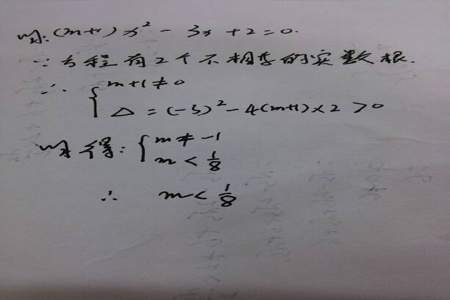 解:(m+1)x² - 3x + 2 = 0.
∵方程有2个不相等的实数根.
∴ { m+1≠0
△ = (-3)² - 4(m+1)×2 > 0
解得: { m≠-1
m < 1/8
∴ m < 1/8